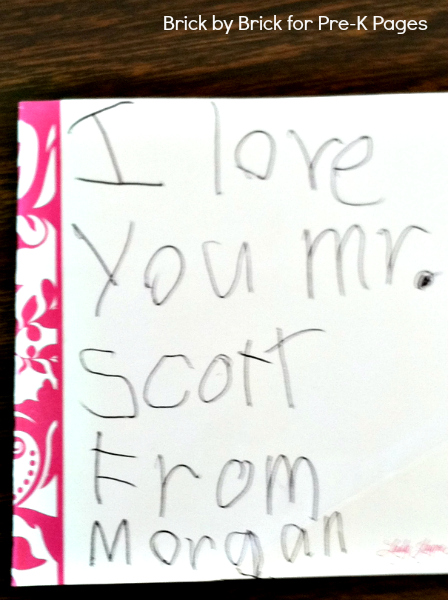 Brick by Brick for Pre-K Pages
I love
you mr.
Scott
From
Morgan